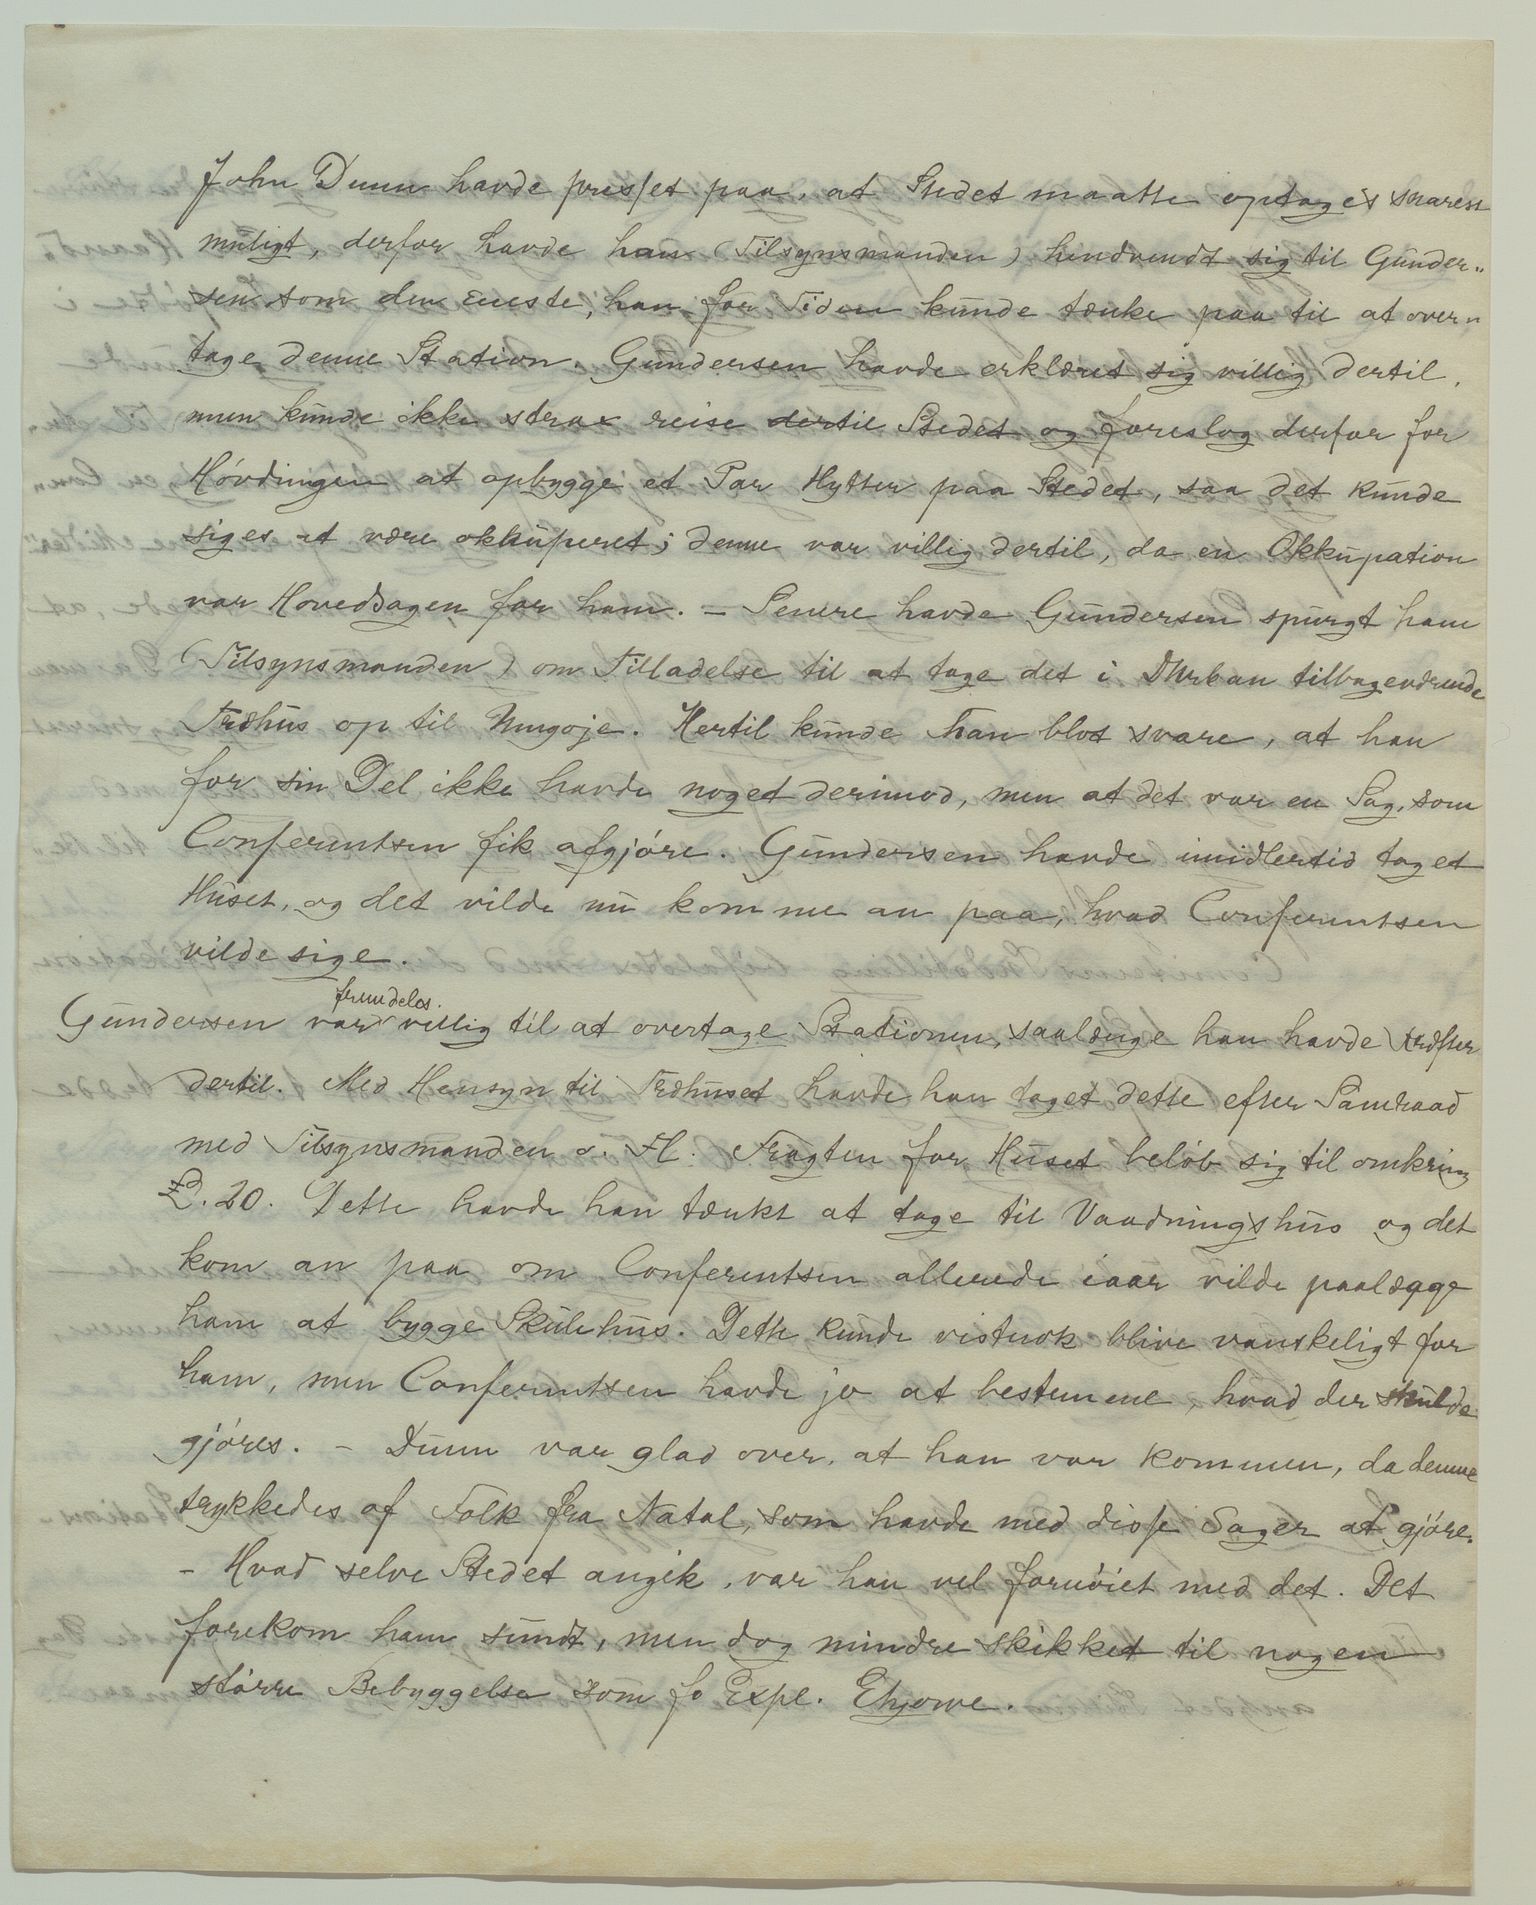 John Dunn havde presset paa, at Stedet maatte optages snarest
muligt, derfor havde han (Tilsynsmanden) hendvendt sig til Gunder„
sen som den eneste, han for Tiden kunde tænke paa til at over„
tage denne Station. Gundersen havde erklæret sig villig dertil,
men kunde ikke strax reise dertil Stedet og foreslog derfor for
Hövdingen at opbygge et Par Hytter paa Stedet, saa det kunde
siges at være okkuperet; denne var villig dertil, da en Okkupation
var Hovedsagen for ham. – Senere havde Gundersen spurgt ham
(Tilsynsmanden) om Tilladelse til at tage det i Durban tilbageværende
Træhus op til Umgoje. Hertil kunde han blot svare, at han
for sin Del ikke havde noget derimod, men at det var en Sag, som
Conferentsen fik afgjöre. Gundersen havde imidlertid taget
Huset, og det vilde nu komme an paa, hvad Conferentsen
vilde sige.
Gundersen var fremdeles. villig til at overtage Stationen, saalænge han havde Kræfter
dertil. Med Hensyn til Træhuset havde han taget dette efter Samraad
med Tilsynsmanden o. Fl. Fragten for Huset belöb sig til omkring
£. 20. Dette havde han tænkt at tage til Vaadningshus og det
kom an paa om Conferentsen allerede iaar vilde paalægge
ham at bygge Skolehus. Dette kunde vistnok blive vanskeligt for
ham, men Conferentsen havde jo at bestemme, hvad der skulde
gjöres. – Dunn var glad over, at han var kommen, da denne
trykkedes af Folk fra Natal, som havde med disse Sager at gjöre.
– Hvad selve Stedet angik, var han vel fornöiet med det. Det
forekom ham sundt, men dog mindre skikket til nogen
större Bebyggelse som f. Expl. Ehjowe.